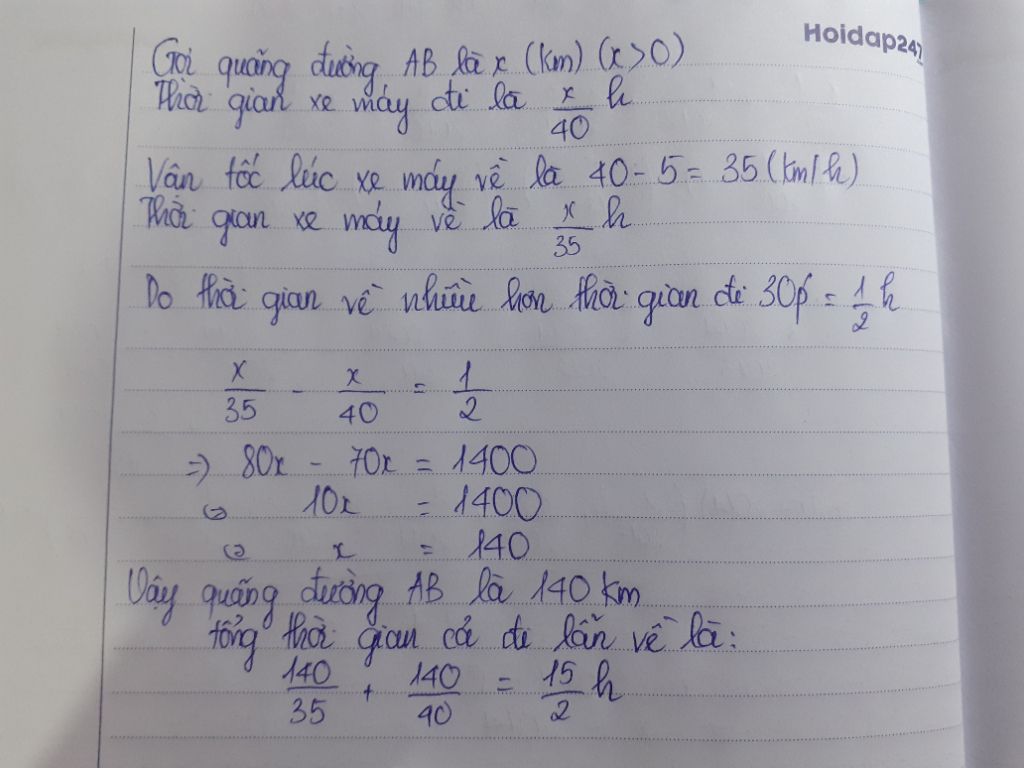 Hoidap247
Gọi quãng đường AB là x (km) (x>0)
Thời gian xe máy đi là x/40 h
Vận tốc lúc xe máy về là 40 - 5 = 35 (km/h)
Thời gian xe máy về là x/35 h
Do thời gian về nhiều hơn thời gian đi 30p = 1/2 h
x/35 - x/40 = 1/2
=> 80x - 70x = 1400
⇔ 10x = 1400
⇔ x = 140
Vậy quãng đường AB là 140 km
tổng thời gian cả đi lẫn về là:
140/35 + 140/40 = 15/2 h